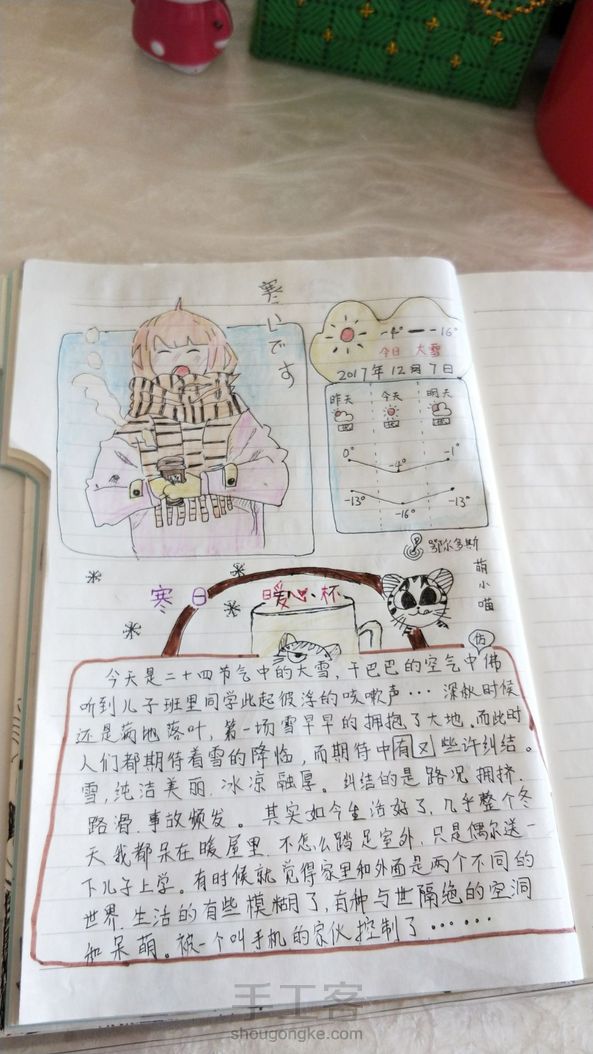 寒いです
-4° — -16°
今日 大雪
2017年12月7日
昨天 今天 明天
0° -4° -1°
-13° -16° -13°
鄂尔多斯
萌小喵
寒日 暖心杯
仿
今天是二十四节气中的大雪,干巴巴的空气中佛
听到儿子班里同学此起彼浮的咳嗽声…深秋时候
还是荷地落叶,第一场雪早早的拥抱了大地。而此时
人们都期待着雪的降临,而期待中有又些许纠结。
雪,纯洁美丽.冰凉融厚。纠结的是路况拥挤.
路滑.事故频发。其实如今生活好了,几乎整个冬
天我都呆在暖屋里.不怎么踏足室外.只是偶尔送一
下儿子上学。有时候就觉得家里和外面是两个不同的
世界.生活的有些模糊了,有种与世隔绝的空洞
和呆萌。被一个叫手机的家伙控制了……
手工客
shougongke.com